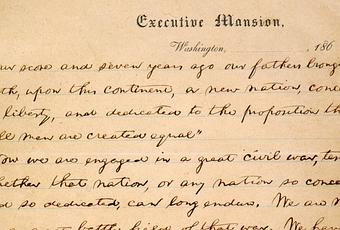 Executive Mansion,
Washington, , 186
score and seven years ago our fathers brough
upon this continent, a new nation, conc
liberty, and dedicated to the proposition th
men are created equal"
we are engaged in a great civil war, tes
whether that nation, or any nation so conce
so dedicated, can long endure. We are n
battle field of that war. We have